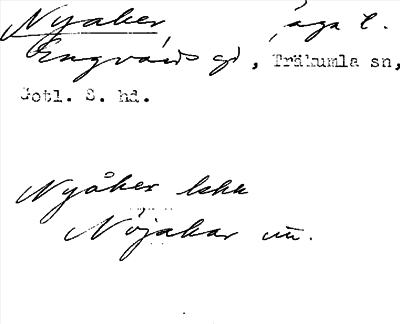 Nyåker äga t.
Engvärds gd, Träkumla sn,
Gotl. S. hd.
Nyåker lshk
Nöjakar uu.